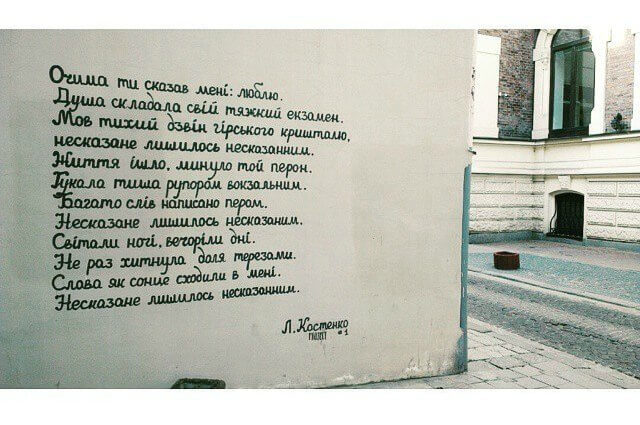 Очима ти сказав мені: люблю.
Душа складала свій тяжкий екзамен.
Мов тихий дзвін гірського кришталю,
несказане лишилось несказанним.
Життя ішло, минуло той перон.
Гукала тиша рупором вокзальним.
Багато слів написано пером.
Несказане лишилось несказаним.
Світали ночі, вечоріли дні.
Не раз хитнула доля терезами.
Слова як сонце сходили в мені.
Несказане лишилось несказанним.
Л.Костенко
#1